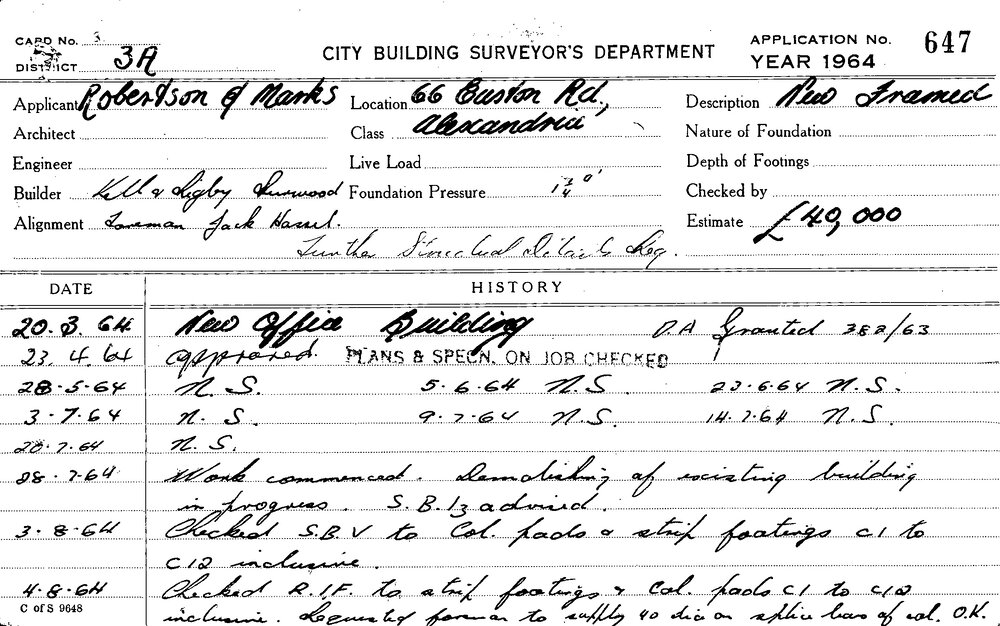 CARD No. 3
DISTRICT 3A
CITY BUILDING SURVEYOR'S DEPARTMENT
APPLICATION No. 647
YEAR 1964
Applicant Robertson & Marks Location 66 Euston Rd., Description New Framed
Architect Class Alexandria Nature of Foundation
Engineer Live Load Depth of Footings
Builder Kell & Rigby Burwood Foundation Pressure Checked by
Alignment Foreman Jack Hassel. Estimate £40,000
Further Structural Details Req.
DATE HISTORY
20.3.64 New Office Building D.A Granted 382/63
23.4.64 approved. PLANS & SPECN. ON JOB CHECKED
28.5.64 N.S. 5.6.64 N.S. 23.6.64 N.S.
3.7.64 N.S. 9.7.64 N.S. 14.7.64 N.S.
20.7.64 N.S.
28.7.64 Work commenced. Demolishing of existing building
in progress. S.B. advised.
3.8.64 Checked S.B.V to Col. pads & strip footings C1 to
C12 inclusive.
4.8.64 Checked R.I.F. to strip footings & Col. pads C1 to C12
C of S 9648
inclusive. Requested foreman to supply 40 dia on splice bars of col. O.K.